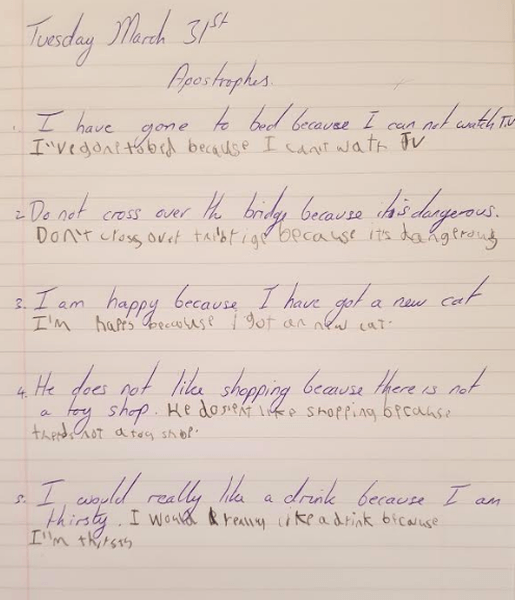 Tuesday March 31st
Apostrophes.
1. I have gone to bed because I can not watch T.V
I"ve gone to bed because I can't wath TV
2. Do not cross over the bridge because it is dangerous.
Don't cross over because it's dangerous
3. I am happy because I have got a new cat
I'm happy because I got an new cat.
4. He does not like shopping because there is not
a toy shop. He dosent like shopping because
not a toy shop.
5. I would really like a drink because I am
thirsty. I would really like a drink because
I"m